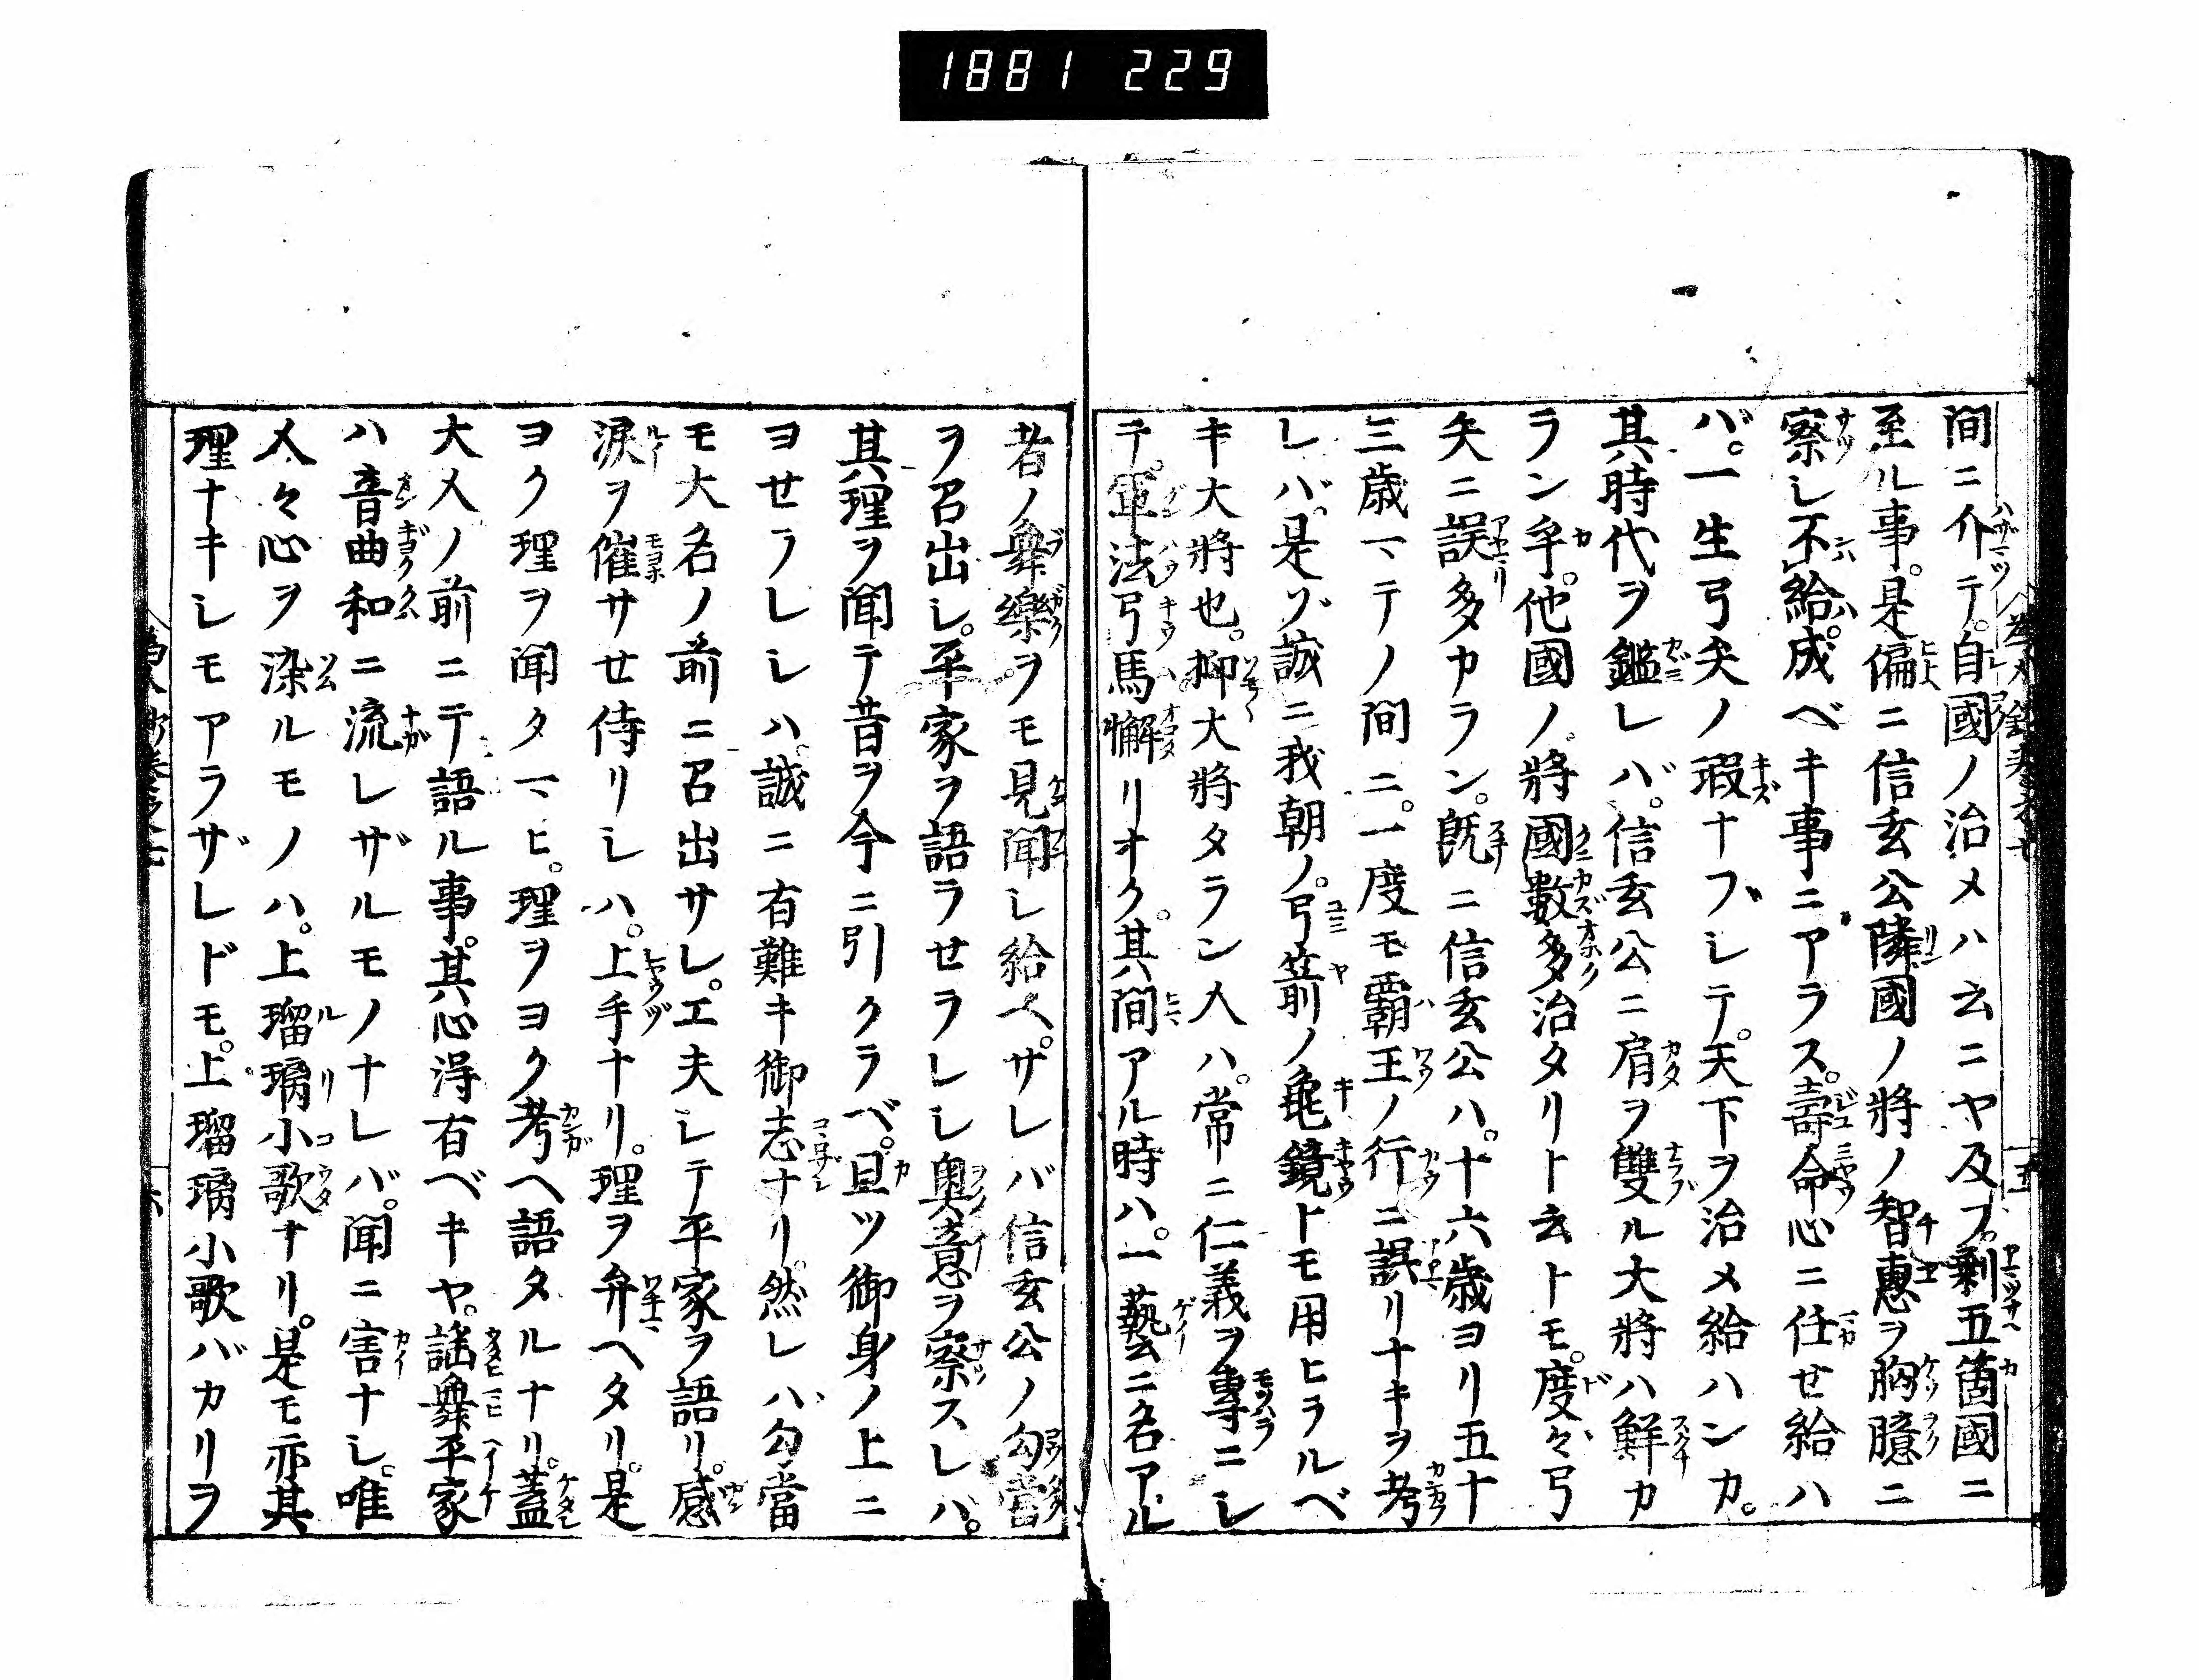 1881 229
間ニ介テ。自國ノ治メハ云ニヤ及フ。剰五箇國ニ
至ル事。是偏ニ信玄公隣國ノ將ノ智惠ヲ胸臆ニ
察シ不給成ベキ事ニアラス。壽命心ニ任せ給ハ
バ。一生弓矢ノ瑕ナフシテ。天下ヲ治メ給ハンカ。
其時代ヲ鑑レバ。信玄公ニ肩ヲ雙ル大將ハ鮮カ
ラン乎。他國ノ將國數多治タリト云トモ。度々弓
矢ニ誤多カラン。既ニ信玄公ハ。十六歳ヨリ五十
三歳マテノ間ニ。一度モ覇王ノ行ニ誤リナキヲ考
レバ。是ゾ誠ニ我朝ノ。弓箭ノ龜鏡トモ用ヒラルベ
キ大將也。抑大將タラン人ハ。常ニ仁義ヲ專ニシ
テ。軍法弓馬懈リオク。其間アル時ハ。一藝ニ名アル
者ノ舞樂ヲモ見聞シ給ヘ。サレバ信玄公ノ勾當
ヲ召出シ。平家ヲ語ラせラレシ奥意ヲ察スレハ。
其理ヲ聞テ昔ヲ今ニ引クラベ。且ツ御身ノ上ニ
ヨせラレシハ。誠ニ有難キ御志ナリ。然レバ勾當
モ大名ノ前ニ召出サレ。工夫シテ平家ヲ語リ。感
涙ヲ催サせ侍リシハ。上手ナリ。理ヲ弁ヘタリ。是
ヨク理ヲ聞タマヒ。理ヲヨク考ヘ語タルナリ。蓋
大人ノ前ニテ語ル事。其心得有ベキヤ。謡舞平家
ハ音曲和ニ流レザルモノナレバ。聞ニ害ナシ。唯
人々心ヲ染ルモノハ。上瑠璃小歌ナリ。是モ亦其
理ナキシモアラザレドモ。上瑠璃小歌バカリヲ